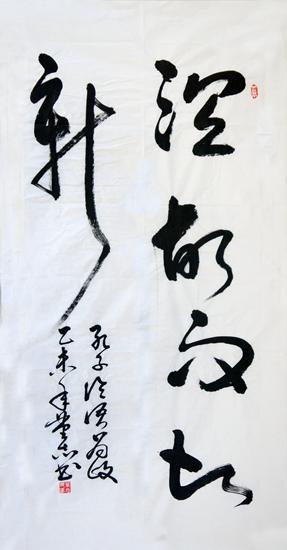 温故而知
新
孔子论语为政
乙未年